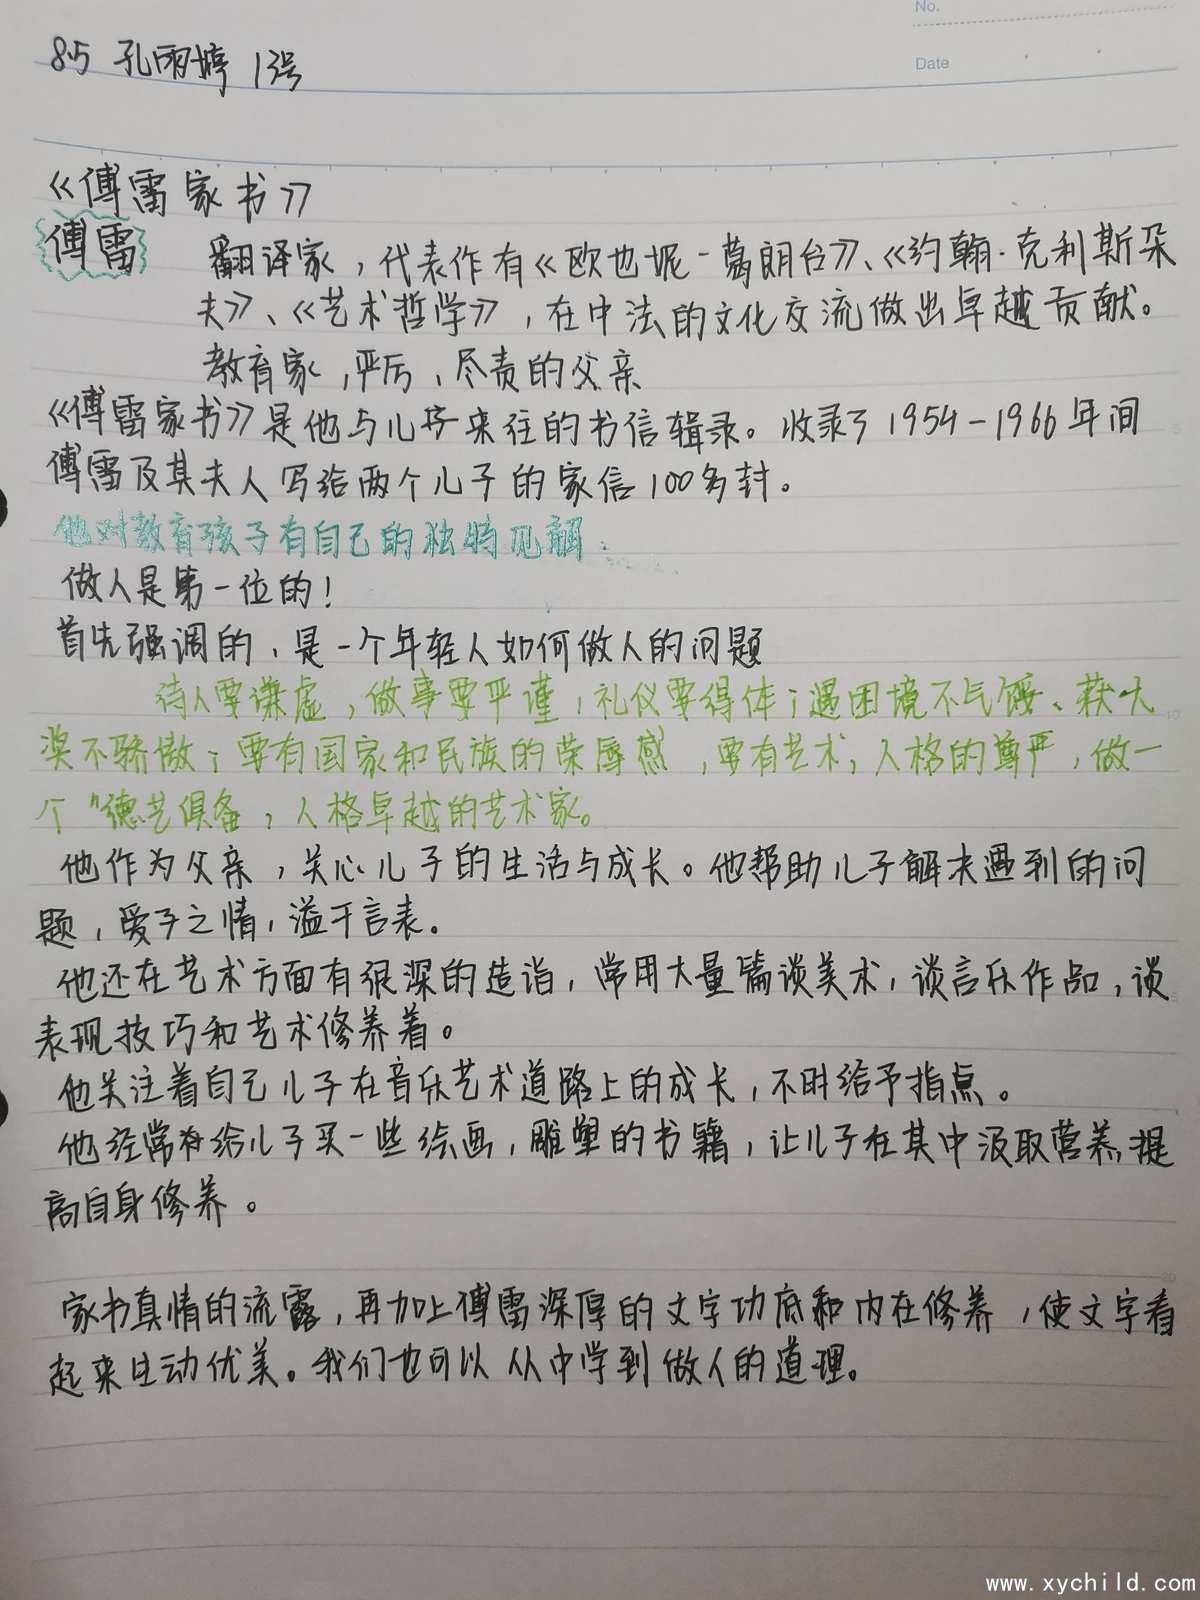 No.
Date
8.5 孔雨婷 13号
《傅雷家书》
傅雷
翻译家，代表作有《欧也妮-葛朗台》、《约翰·克利斯朵
夫》、《艺术哲学》，在中法的文化交流做出卓越贡献。
教育家，严厉，尽责的父亲
《傅雷家书》是他与儿子来往的书信辑录。收录了1954-1966年间
傅雷及其夫人写给两个儿子的家信100多封。
他对教育孩子有自己的独特见解：
做人是第一位的！
首先强调的，是一个年轻人如何做人的问题
待人要谦虚，做事要严谨，礼仪要得体；遇困境不气馁、获大
奖不骄傲；要有国家和民族的荣辱感，要有艺术，人格的尊严，做一
个“德艺俱备，人格卓越的艺术家。
他作为父亲，关心儿子的生活与成长。他帮助儿子解决遇到的问
题，爱子之情，溢于言表。
他还在艺术方面有很深的造诣，常用大量篇谈美术，谈音乐作品，谈
表现技巧和艺术修养着。
他关注着自己儿子在音乐艺术道路上的成长，不时给予指点。
他经常给儿子买一些绘画，雕塑的书籍，让儿子在其中汲取营养，提
高自身修养。
家书真情的流露，再加上傅雷深厚的文字功底和内在修养，使文字看
起来生动优美。我们也可以从中学到做人的道理。
www.xychild.com